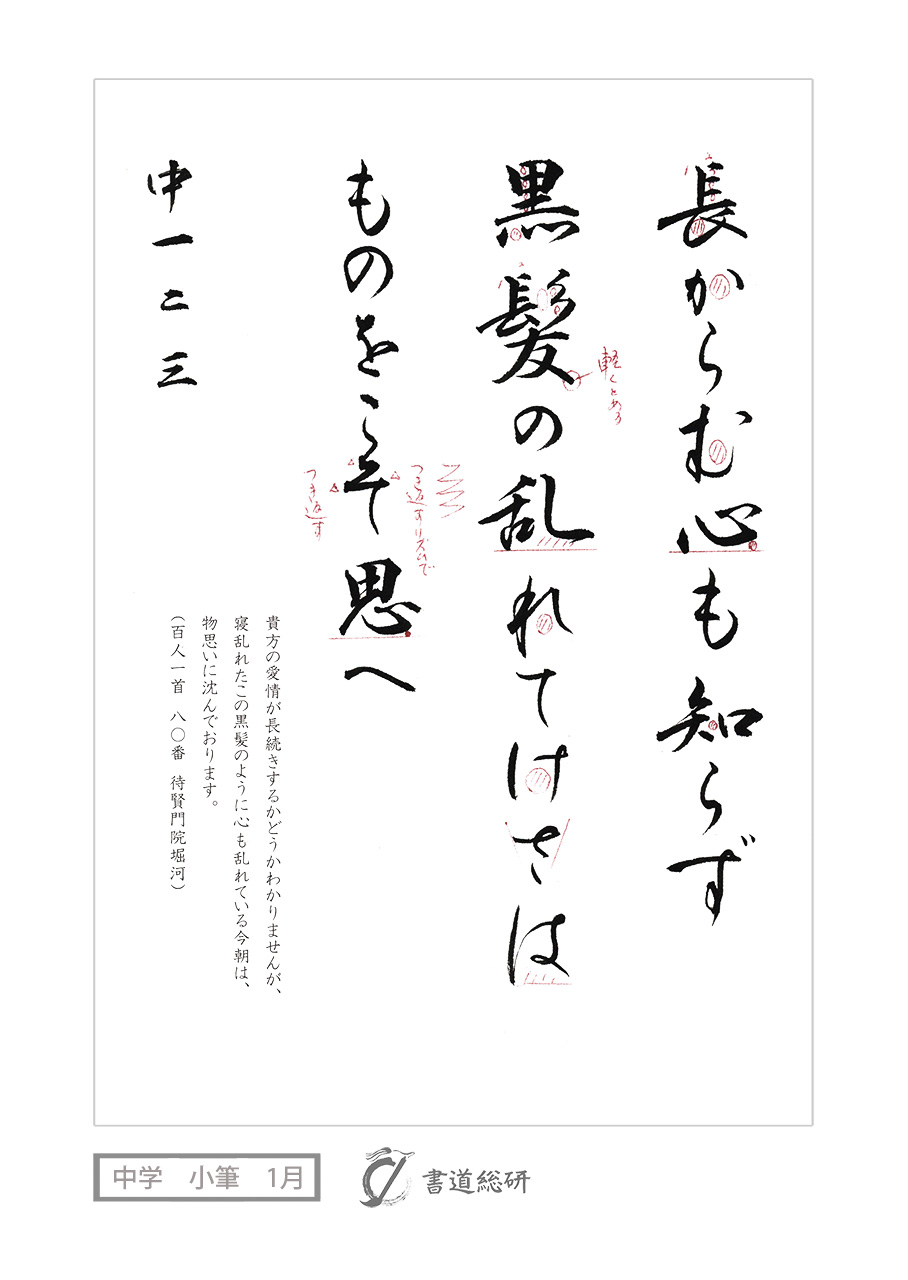 長からむ心も知らず
黒髪の乱れてけさは
軽くとめる
ものをこそ思へ
つき返すリズムで
つき返す
中一二三
貴方の愛情が長続きするかどうかわかりませんが、
寝乱れたこの黒髪のように心も乱れている今朝は、
物思いに沈んでおります。
(百人一首 八〇番 待賢門院堀河)
中学 小筆 1月
書道総研